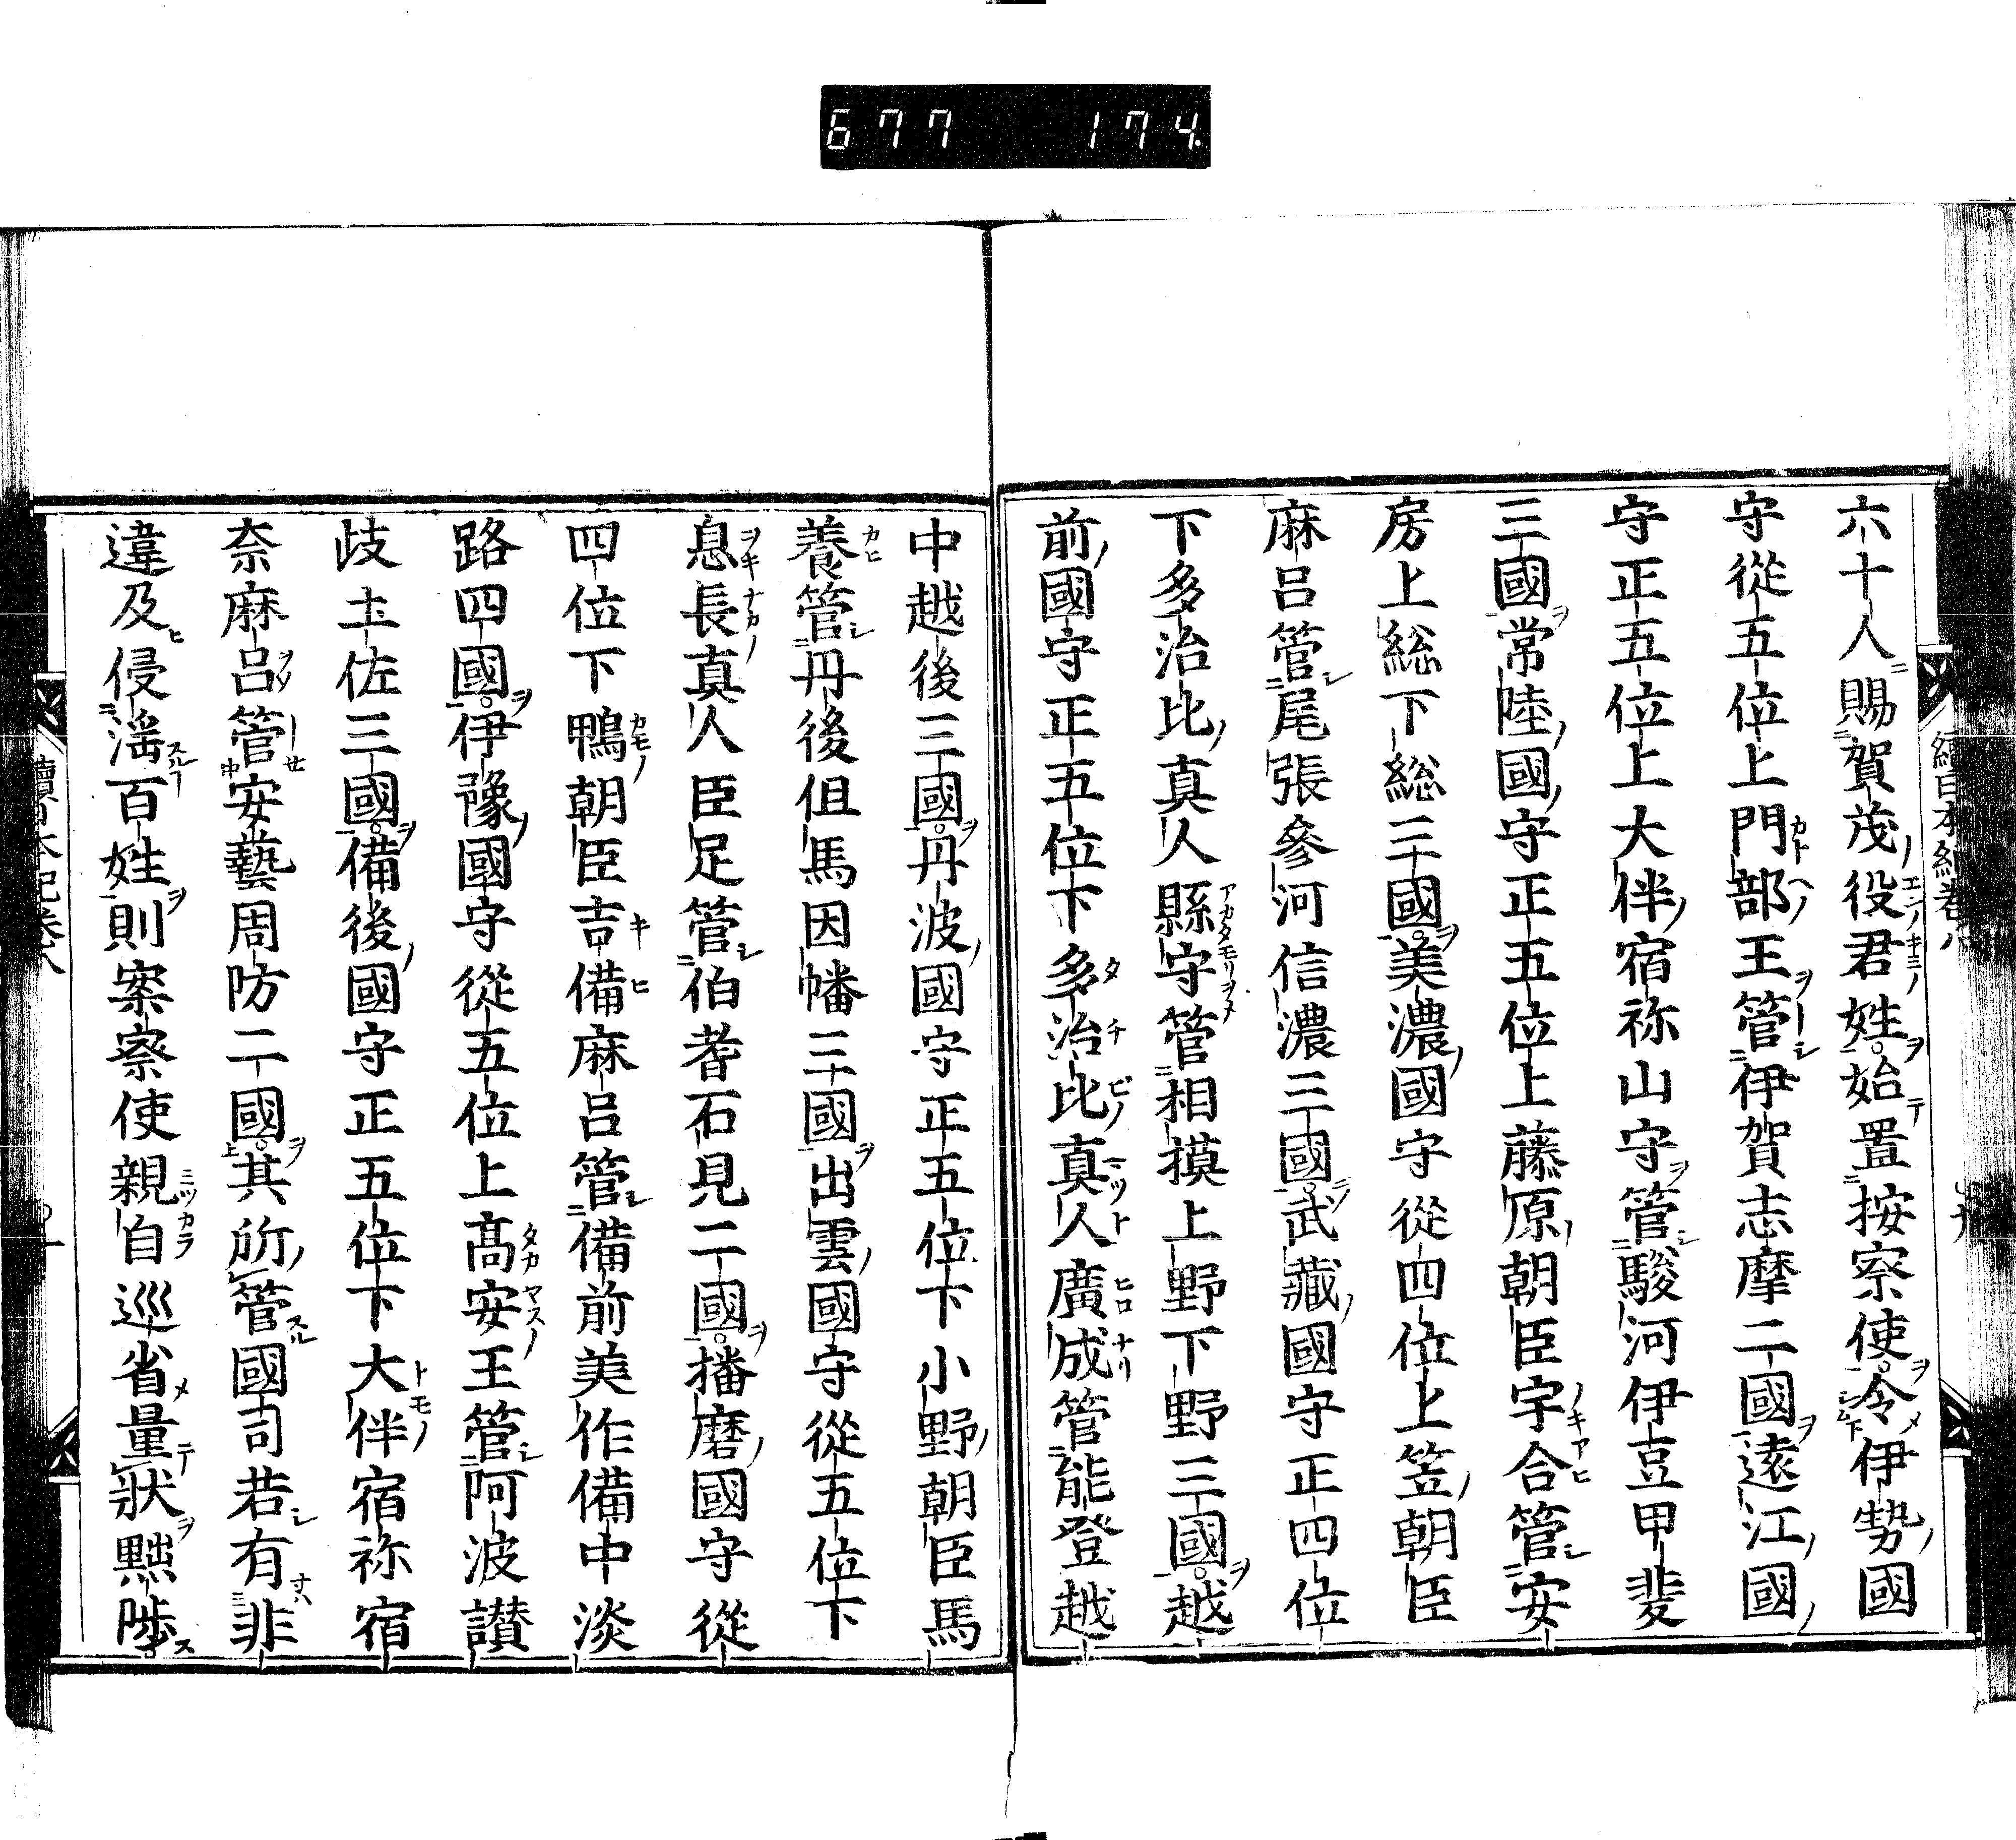 677 174
六十人賜賀茂役君姓始置按察使令伊勢國
守從五位上門部王管伊賀志摩二國遠江國
守正五位上大伴宿祢山守管駿河伊豆甲斐
三國常陸國守正五位上藤原朝臣宇合管安
房上総下総三國美濃國守從四位上笠朝臣
麻呂管尾張參河信濃三國武藏國守正四位
下多治比真人縣守管相摸上野下野三國越
前國守正五位下多治比真人廣成管能登越
中越後三國丹波國守正五位下小野朝臣馬
養管丹後但馬因幡三國出雲國守從五位下
息長真人臣足管伯耆石見二國播磨國守從
四位下鴨朝臣吉備麻呂管備前美作備中淡
路四國伊豫國守從五位上髙安王管阿波讃
歧土佐三國備後國守正五位下大伴宿祢宿
奈麻呂管安藝周防二國其所管國司若有非
違及侵漁百姓則案察使親自巡省量狀黜陟